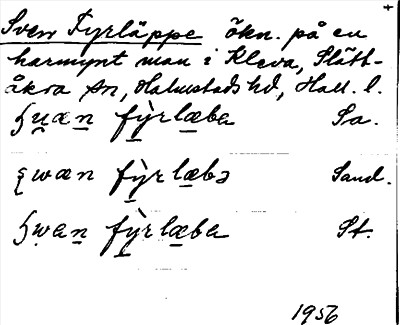 Sven Fyrläppe ökn. på en
harmynt man i Kleva, Slätt-
åkra sn, Halmstads hd, Hall. l.
ꞩu̯æn fỳrlæbe Sa.
ꞩwæn fỳrlæbə Sand.
ꞩwen fỳrlæbe St.
1956